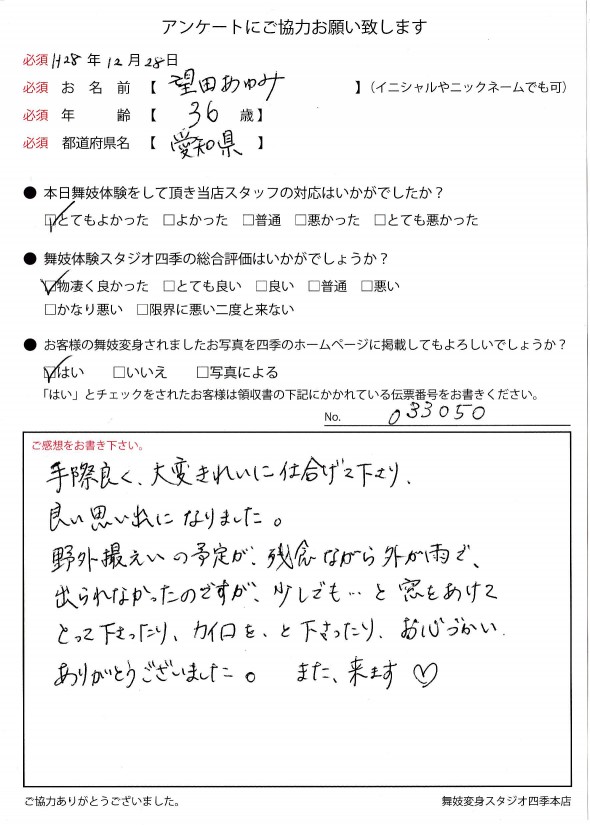 アンケートにご協力お願い致します
必須 H28年12月28日
必須 お名前 【 望田あゆみ 】（イニシャルやニックネームでも可）
必須 年齢 【 36 歳】
必須 都道府県名 【 愛知県 】
● 本日舞妓体験をして頂き当店スタッフの対応はいかがでしたか？
☑とてもよかった □よかった □普通 □悪かった □とても悪かった
● 舞妓体験スタジオ四季の総合評価はいかがでしょうか？
☑物凄く良かった □とても良い □良い □普通 □悪い
□かなり悪い □限界に悪い二度と来ない
● お客様の舞妓変身されましたお写真を四季のホームページに掲載してもよろしいでしょうか？
☑はい □いいえ □写真による
「はい」とチェックをされたお客様は領収書の下記にかかれている伝票番号をお書きください。
No. 033050
ご感想をお書き下さい。
手際良く、大変きれいに仕上げて下さり、
良い思い出になりました。
野外撮えいの予定が、残念ながら外が雨で、
出られなかったのですが、少しでも…と窓をあけて
とって下さったり、カイロを、と下さったり、お心づかい
ありがとうございました。 また、来ます♡
ご協力ありがとうございました。
舞妓変身スタジオ四季本店